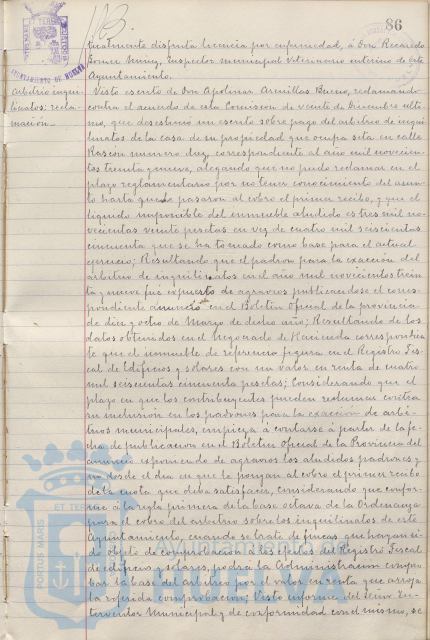 86
ticalmente disfruta licencia por enfermedad, á Don Ricardo
Ponce Muñiz, Inspector municipal Veterinario interino de este
Ayuntamiento.
AYUNTAMIENTO DE HUELVA
Arbitrio inqui-
linatos; recla-
mación.-
Visto escrito de Don Apolinar Arenillas Bueno, reclamando
contra el acuerdo de esta Comision de veinte de Diciembre ulti-
mo, que desestimó un escrito sobre pago del arbitrio de inqui-
linatos de la casa de su propiedad que ocupa sita en calle
Rascon numero diez, correspondiente al año mil novecien-
tos treinta y nueve, alegando que no pudo reclamar en el
plazo reglamentario por no tener conocimiento del asun-
to hasta que pasaron al cobro el primer recibo, y que el
liquido imponible del inmueble aludido es tres mil no-
vecientas veinte pesetas en vez de cuatro mil seiscientas
cincuenta que se ha tomado como base para el actual
ejercicio; Resultando que el padron para la exacción del
arbitrio de inquilinatos en el año mil novecientos trein-
ta y nueve fué expuesto de agravios publicandose el corres-
pondiente anuncio en el Boletin Oficial de la provincia
de diez y ocho de Marzo de dicho año; Resultando de los
datos obtenidos en el Negociado de Hacienda correspondien-
te que el inmueble de referencia figura en el Registro Fis-
cal de Edificios y solares con un valor en renta de cuatro
mil seiscientas cincuenta pesetas; Considerando que el
plazo en que los contribuyentes pueden reclamar contra
su inclusion en los padrones para la exacción de arbi-
trios municipales, empieza á contarse á partir de la fe-
cha de publicacion en el Boletin Oficial de la Provincia del
anuncio exponiendo de agravios los aludidos padrones y
no desde el dia en que le pongan al cobro el primer recibo
de la cuota que deba satisfacer, considerando que confor-
me á la regla primera de la base octava de la Ordenanza
para el cobro del arbitrio sobre los inquilinatos de este
Ayuntamiento, cuando se trate de fincas que hayan si-
do objeto de comprobacion á los efectos del Registro Fiscal
de edificios y solares, podrá la Administracion compro-
bar la base del arbitrio por el valor en renta que arroja
la referida comprobacion; Visto informe del Señor In-
terventor Municipal y de conformidad con el mismo, se
PORTUS MARIS
ET TERRAE